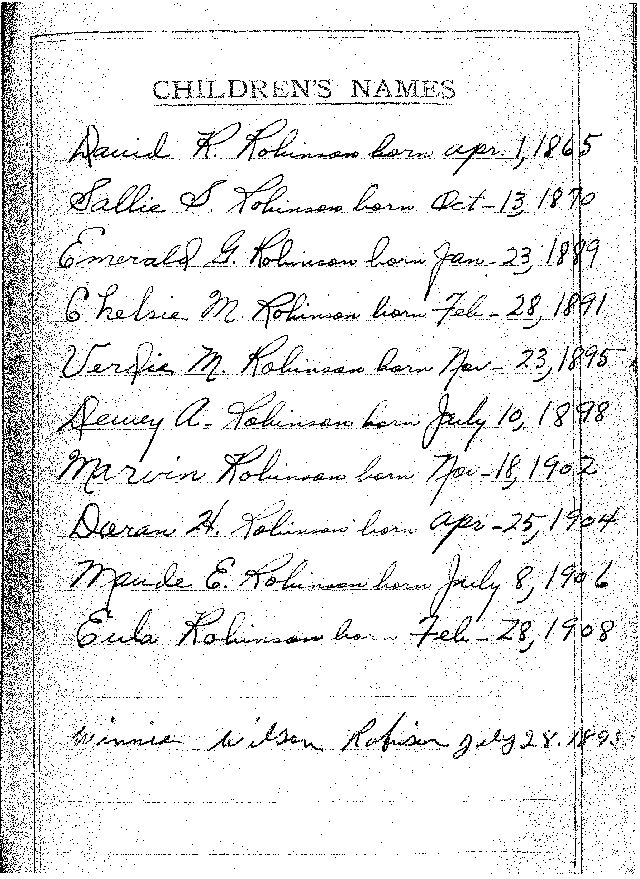 CHILDREN'S NAMES
David R. Robinson born Apr. 1, 1865
Sallie S. Robinson born Oct-13, 1870
Emerald G. Robinson born Jan-23, 1889
Chelsie M. Robinson born Feb-28, 1891
Verdie M. Robinson born Nov-23, 1895
Dewey A- Robinson born July 10, 1898
Marvin Robinson born Nov-18, 1902
Doran H. Robinson born Apr-25, 1904
Maude E. Robinson born July 8, 1906
Eula Robinson bor Feb-28, 1908
Winnie Wilson Robison July 28.